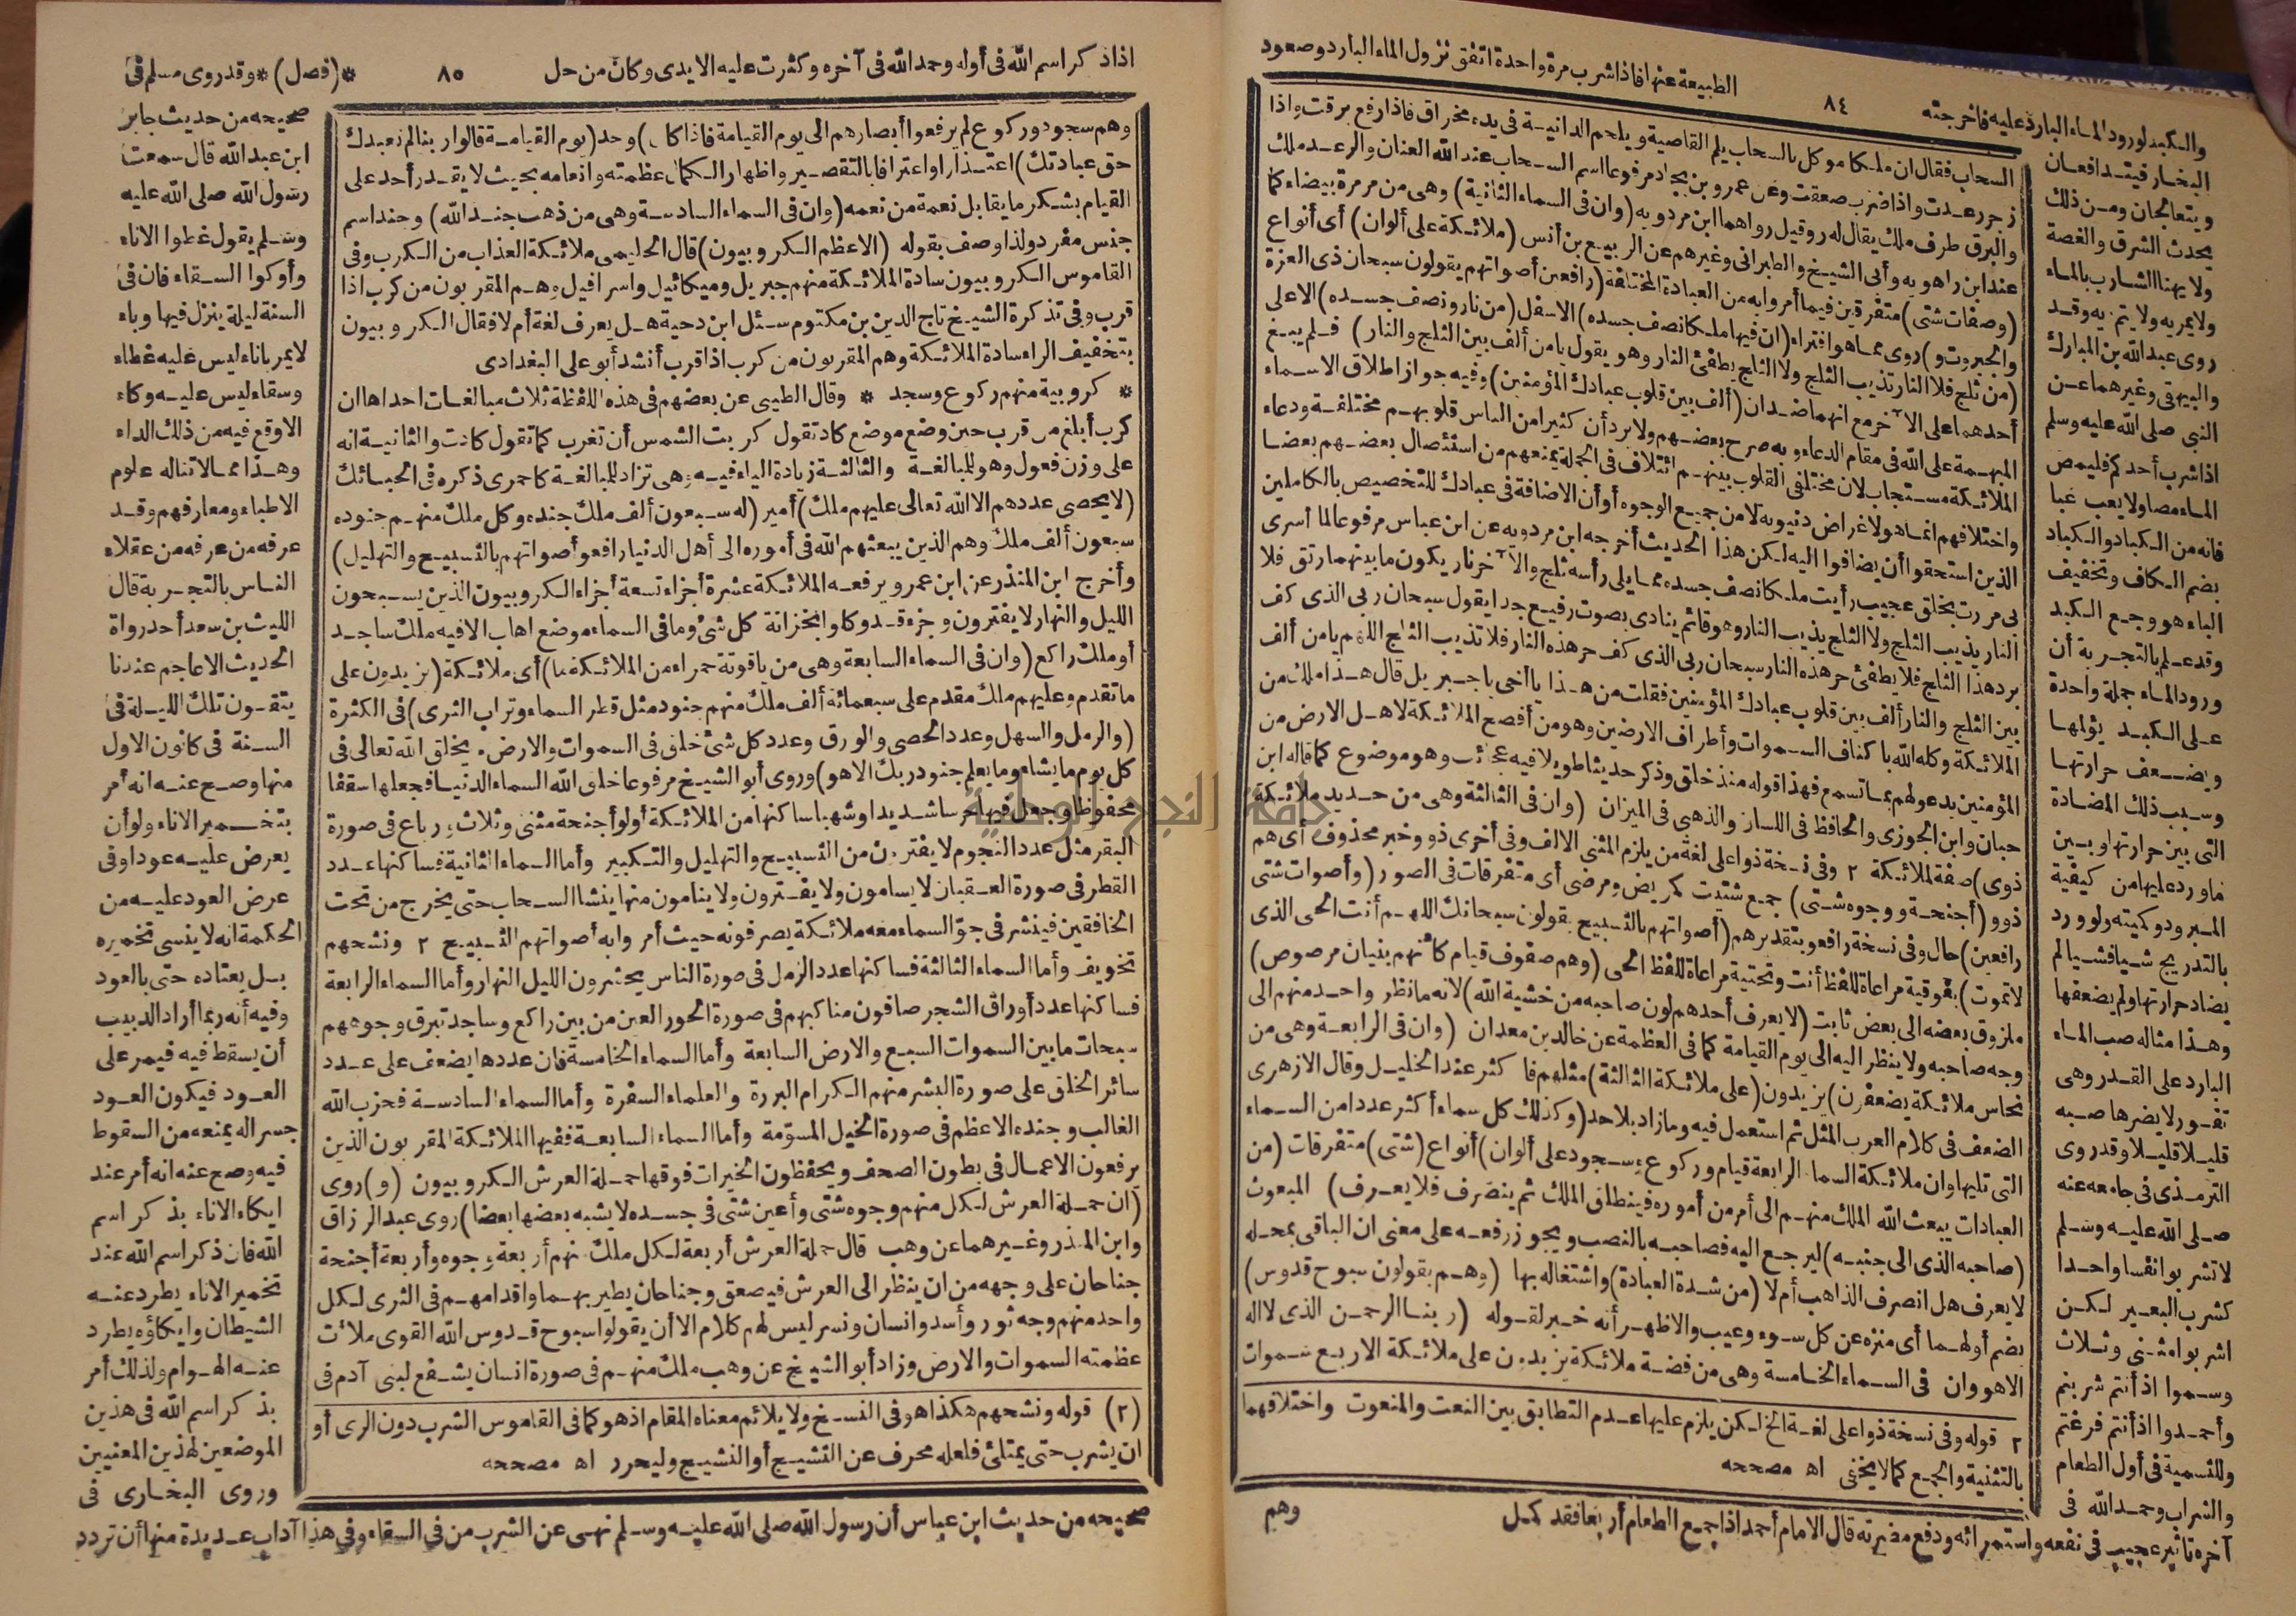 الطبيعة عنها فاذا شرب مرة واحدة اتفق نزول الماء البارد وصعود
٨٤
والكبد لورود الماء البارد عليه فاخرجته
البخار فيتدافعان
ويتعالجان ومن ذلك
يحدث الشرق والغصة
ولا يهنأ الشارب بالماء
ولا يمريه ولا يتم ريه وقد
روى عبد الله بن المبارك
والبيهقى وغيرهما عن
النبى صلى الله عليه وسلم
اذا شرب أحدكم فليمص
الماء مصا ولا يعب عبا
فانه من الكباد والكباد
بضم الكاف وتخفيف
الباء هو وجع الكبد
وقد علم بالتجربة أن
ورود الماء جملة واحدة
على الكبد يؤلمها
ويضعف حرارتها
وسبب ذلك المضادة
التى بين حرارتها وبين
ما ورد عليها من كيفية
المبرود وكميته ولو ورد
بالتدريج شيأ فشيأ لم
يضاد حرارتها ولم يضعفها
وهذا مثاله صب الماء
البارد على القدر وهى
تفور لا يضرها صبه
قليلا قليلا وقد روى
الترمذى فى جامعه عنه
صلى الله عليه وسلم
لا تشربوا نفسا واحدا
كشرب البعير لكن
اشربوا مثنى وثلاث
وسموا اذا أنتم شربتم
وأحمدوا اذا أنتم فرغتم
وللتسمية فى أول الطعام
والشراب وحمد الله فى
آخره تأثير عجيب فى نفعه واستمرائه ودفع مضرته قال الامام أحمد اذا جمع الطعام أربعا فقد كمل
السحاب فقال ان ملكا موكل بالسحاب يلم القاصية ويلحم الدانية فى يده مخراق فاذا رفع برقت واذا
زجر رعدت واذا ضرب صعقت وعن عمرو بن بجاد مرفوعا اسم السحاب عند الله العنان والرعد ملك
والبرق طرف ملك يقال له روقيل رواهما ابن مردويه (وان فى السماء الثانية) وهى من مرمرة بيضاء كما
عند ابن راهويه وأبى الشيخ والطبرانى وغيرهم عن الربيع بن أنس (ملائكة على ألوان) أى أنواع
(وصفات شتى) متفرقين فيما أمروا به من العبادة المختلفة (رافعين أصواتهم يقولون سبحان ذى العزة
والجبروت و) روى مما هو افتراء (ان فيها ملكا نصف جسده) الاسفل (من نار ونصف جسده) الاعلى
(من ثلج فلا النار تذيب الثلج ولا الثلج يطفئ النار وهو يقول يا من ألف بين الثلج والنار) فلم يبغ
أحدهما على الآخر مع انهما ضدان (ألف بين قلوب عبادك المؤمنين) وفيه جواز اطلاق الاسماء
المبهمة على الله فى مقام الدعاء وبه صرح بعضهم ولا يرد أن كثيرا من الناس قلوبهم مختلفة ودعاء
الملائكة مستجاب لان مختلفى القلوب بينهم ائتلاف فى الجملة يمنعهم من استئصال بعضهم بعضا
واختلافهم انما هو لاغراض دنيوية لا من جميع الوجوه أو أن الاضافة فى عبادك للتخصيص بالكاملين
الذين استحقوا أن يضافوا اليه لكن هذا الحديث أخرجه ابن مردويه عن ابن عباس مرفوعا لما أسرى
بى مررت بخلق عجيب رأيت ملكا نصف جسده مما يلى رأسه ثلج والآخر نار يكون ما بينهما رتق فلا
النار يذيب الثلج ولا الثلج يذيب النار وهو قائم ينادى بصوت رفيع جدا يقول سبحان ربى الذى كف
برد هذا الثلج فلا يطفئ حر هذه النار سبحان ربى الذى كف حر هذه النار فلا تذيب الثلج اللهم يا من ألف
بين الثلج والنار ألف بين قلوب عبادك المؤمنين فقلت من هذا يا أخى يا جبريل قال هذا ملك من
الملائكة وكله الله باكناف السموات وأطراف الارضين وهو من أفصح الملائكة لاهل الارض من
المؤمنين يدعو لهم بما تسمع فهذا قوله منذ خلق وذكر حديثا طويلا فيه عجائب وهو موضوع كما قاله ابن
حبان وابن الجوزى والحافظ فى اللسان والذهبى فى الميزان (وان فى الثالثة وهى من حديد ملائكة
ذوى) صفة لملائكة ٢ وفى نسخة ذوا على لغة من يلزم المثنى الالف وفى أخرى ذوو خبر محذوف أى هم
ذوو (أجنحة ووجوه شتى) جمع شتيت كمريض ومرضى أى متفرقات فى الصور (وأصوات شتى
رافعين) حال وفى نسخة رافعو بتقديرهم (أصواتهم بالتسبيح يقولون سبحانك اللهم أنت الحى الذى
لا تموت) بفوقية مراعاة للفظ أنت وتحتية مراعاة للفظ الحى (وهم صفوف قيام كأنهم بنيان مرصوص)
ملزوق بعضه الى بعض ثابت (لا يعرف أحدهم لون صاحبه من خشية الله) لانه ما نظر واحد منهم الى
وجه صاحبه ولا ينظر اليه الى يوم القيامة كما فى العظمة عن خالد بن معدان (وان فى الرابعة وهى من
نحاس ملائكة يضعفون) يزيدون (على ملائكة الثالثة) مثلهم فأكثر عند الخليل وقال الازهرى
الضعف فى كلام العرب المثل ثم استعمل فيه وما زاد بلا حد (وكذلك كل سماء أكثر عددا من السماء
التى تليها وان ملائكة السماء الرابعة قيام وركوع وسجود على ألوان) أنواع (شتى) متفرقات (من
العبادات يبعث الله الملك منهم الى أمر من أموره فينطلق الملك ثم ينصرف فلا يعرف) المبعوث
(صاحبه الذى الى جنبه) ليرجع اليه فصاحبه بالنصب ويجوز رفعه على معنى ان الباقى بمحله
لا يعرف هل انصرف الذاهب أم لا (من شدة العبادة) واشتغاله بها (وهم يقولون سبوح قدوس)
بضم أولهما أى منزه عن كل سوء وعيب والاظهر أنه خبر لقوله (ربنا الرحمن الذى لا اله
الا هو وان فى السماء الخامسة وهى من فضة ملائكة يزيدون على ملائكة الاربع سموات
٢ قوله وفى نسخة ذوا على لغة الخ لكن يلزم عليها عدم التطابق بين النعت والمنعوت واختلافهما
بالتثنية والجمع كما لا يخفى اه مصححه
وهم
اذا ذكر اسم الله فى أوله وحمد الله فى آخره وكثرت عليه الايدى وكان من حل
٨٥
*(فصل)* وقد روى مسلم فى
وهم سجود وركوع لم يرفعوا أبصارهم الى يوم القيامة فاذا كان) وحد (يوم القيامة قالوا ربنا لم نعبدك
حق عبادتك) اعتذارا واعترافا بالتقصير واظهارا لكمال عظمته وانعامه بحيث لا يقدر أحد على
القيام بشكر ما يقابل نعمة من نعمه (وان فى السماء السادسة وهى من ذهب جند الله) وجند اسم
جنس مفرد ولذا وصف بقوله (الاعظم الكروبيون) قال الحليمى ملائكة العذاب من الكرب وفى
القاموس الكروبيون سادة الملائكة منهم جبريل وميكائيل واسرافيل وهم المقربون من كرب اذا
قرب وفى تذكرة الشيخ تاج الدين بن مكتوم سئل ابن دحية هل يعرف لغة أم لا فقال الكروبيون
بتخفيف الراء سادة الملائكة وهم المقربون من كرب اذا قرب أنشد أبو على البغدادى
* كروبية منهم ركوع وسجد * وقال الطيبى عن بعضهم فى هذه اللفظة ثلاث مبالغات احداها ان
كرب أبلغ من قرب حين وضع موضع كاد تقول كربت الشمس أن تغرب كما تقول كادت والثانية انه
على وزن فعول وهو للمبالغة والثالثة زيادة الياء فيه وهى تزاد للمبالغة كاحمرى ذكره فى الحبائك
(لا يحصى عددهم الا الله تعالى عليهم ملك) أمير (له سبعون ألف ملك جنده وكل ملك منهم جنوده
سبعون ألف ملك وهم الذين يبعثهم الله فى أموره الى أهل الدنيا رافعو أصواتهم بالتسبيح والتهليل)
وأخرج ابن المنذر عن ابن عمرو يرفعه الملائكة عشرة أجزاء تسعة أجزاء الكروبيون الذين يسبحون
الليل والنهار لا يفترون وجزء قد وكلوا بخزانة كل شئ وما فى السماء موضع اهاب الا فيه ملك ساجد
أو ملك راكع (وان فى السماء السابعة وهى من ياقوتة حمراء من الملائكة ما) أى ملائكة (يزيدون على
ما تقدم وعليهم ملك مقدم على سبعمائة ألف ملك منهم جنود مثل قطر السماء وتراب الثرى) فى الكثرة
(والرمل والسهل وعدد الحصى والورق وعدد كل شئ خلق فى السموات والارض. يخلق الله تعالى فى
كل يوم ما يشاء وما يعلم جنود ربك الا هو) وروى أبو الشيخ مرفوعا خلق الله السماء الدنيا فجعلها سقفا
محفوظا وجعل فيها حرسا شديدا وشهبا ساكنها من الملائكة أولو أجنحة مثنى وثلاث ورباع فى صورة
البقر مثل عدد النجوم لا يفترون من التسبيح والتهليل والتكبير وأما السماء الثانية فساكنها عدد
القطر فى صورة العقبان لا يسامون ولا يفترون ولا ينامون منها ينشأ السحاب حتى يخرج من تحت
الخافقين فينشر فى جو السماء معه ملائكة يصرفونه حيث أمروا به أصواتهم التسبيح ٢ ونشحهم
تخويف وأما السماء الثالثة فساكنها عدد الرمل فى صورة الناس يجئرون الليل النهار وأما السماء الرابعة
فساكنها عدد أوراق الشجر صافون مناكبهم فى صورة الحور العين من بين راكع وساجد تبرق وجوههم
سبحات ما بين السموات السبع والارض السابعة وأما السماء الخامسة فان عددها يضعف على عدد
سائر الخلق على صورة البشر منهم الكرام البررة والعلماء السفرة وأما السماء السادسة فحزب الله
الغالب وجنده الاعظم فى صورة الخيل المسومة وأما السماء السابعة ففيها الملائكة المقربون الذين
يرفعون الاعمال فى بطون الصحف ويحفظون الخيرات فوقها حملة العرش الكروبيون (و) روى
(ان حملة العرش لكل منهم وجوه شتى وأعين شتى فى جسده لا يشبه بعضها بعضا) روى عبد الرزاق
وابن المنذر وغيرهما عن وهب قال حملة العرش أربعة لكل ملك منهم أربعة وجوه وأربعة أجنحة
جناحان على وجهه من ان ينظر الى العرش فيصعق وجناحان يطير بهما واقدامهم فى الثرى لكل
واحد منهم وجه ثور وأسد وانسان ونسر ليس لهم كلام الا أن يقولوا سبوح قدوس الله القوى ملأت
عظمته السموات والارض وزاد أبو الشيخ عن وهب ملك منهم فى صورة انسان يشفع لبنى آدم فى
(٢) قوله ونشحهم هكذا هو فى النسخ ولا يلائم معناه المقام اذ هو كما فى القاموس الشرب دون الرى أو
ان يشرب حتى يمتلئ فلعله محرف عن التشيج أو النشيج وليحرر اه مصححه
صحيحه من حديث جابر
ابن عبد الله قال سمعت
رسول الله صلى الله عليه
وسلم يقول غطوا الاناء
وأوكوا السقاء فان فى
السنة ليلة ينزل فيها وباء
لا يمر باناء ليس عليه غطاء
وسقاء ليس عليه وكاء
الا وقع فيه من ذلك الداء
وهذا مما لا تناله علوم
الاطباء ومعارفهم وقد
عرفه من عرفه من عقلاء
الناس بالتجربة قال
الليث بن سعد أحد رواة
الحديث الاعاجم عندنا
يتقون تلك الليلة فى
السنة فى كانون الاول
منها وصح عنه انه أمر
بتخمير الاناء ولو أن
يعرض عليه عودا وفى
عرض العود عليه من
الحكمة انه لا ينسى تخميره
بل يعتاده حتى بالعود
وفيه أنه ربما أراد الدبيب
أن يسقط فيه فيمر على
العود فيكون العود
جسرا له يمنعه من السقوط
فيه وصح عنه انه أمر عند
ايكاء الاناء بذكر اسم
الله فان ذكر اسم الله عند
تخمير الاناء يطرد عنه
الشيطان وايكاؤه يطرد
عنه الهوام ولذلك أمر
بذكر اسم الله فى هذين
الموضعين لهذين المعنيين
وروى البخارى فى
صحيحه من حديث ابن عباس أن رسول الله صلى الله عليه وسلم نهى عن الشرب من فى السقاء وفى هذا آداب عديدة منها أن تردد